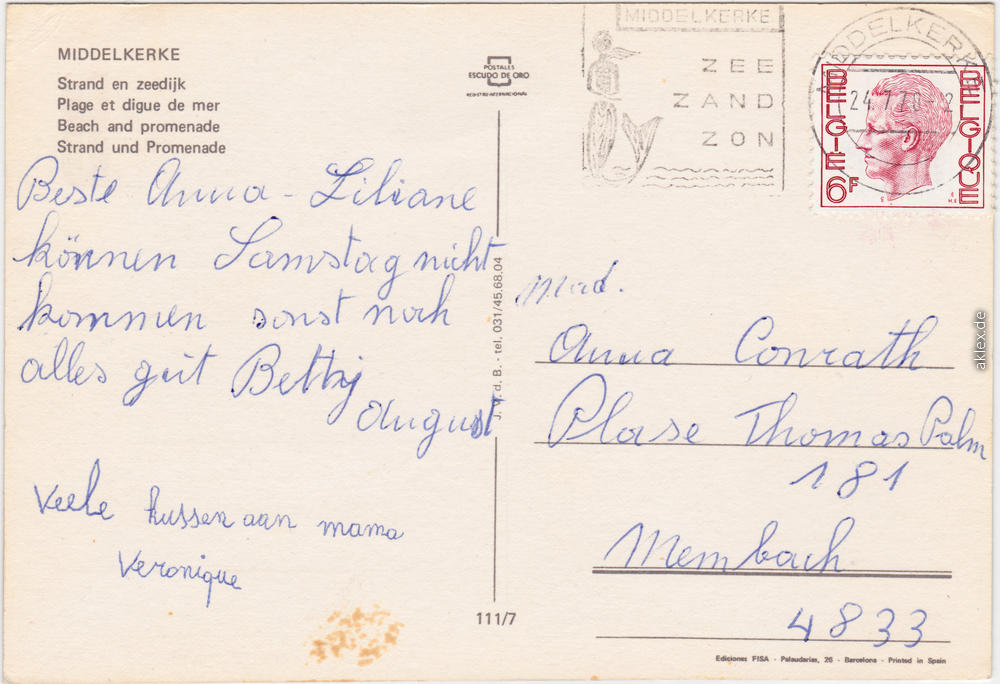 MIDDELKERKE
Strand en zeedijk
Plage et digue de mer
Beach and promenade
Strand und Promenade
Beste Anna - Liliane
können Samstag nicht
kommen sonst noch
alles gut Betty
August
Veele kussen aan mama
Veronique
POSTALES
ESCUDO DE ORO
REGISTRO INTERNACIONAL
J. v. d. B. - tel. 031/45.68.04
111/7
MIDDELKERKE
ZEE
ZAND
ZON
MIDDELKERKE
24.7.7
BELGIE 6F
BELGIQUE
Mad.
Anna Conrath
Plase Thomas Palm
181
Membach
4833
Ediciones FISA - Palaudarias, 26 - Barcelona - Printed in Spain
aklex.de